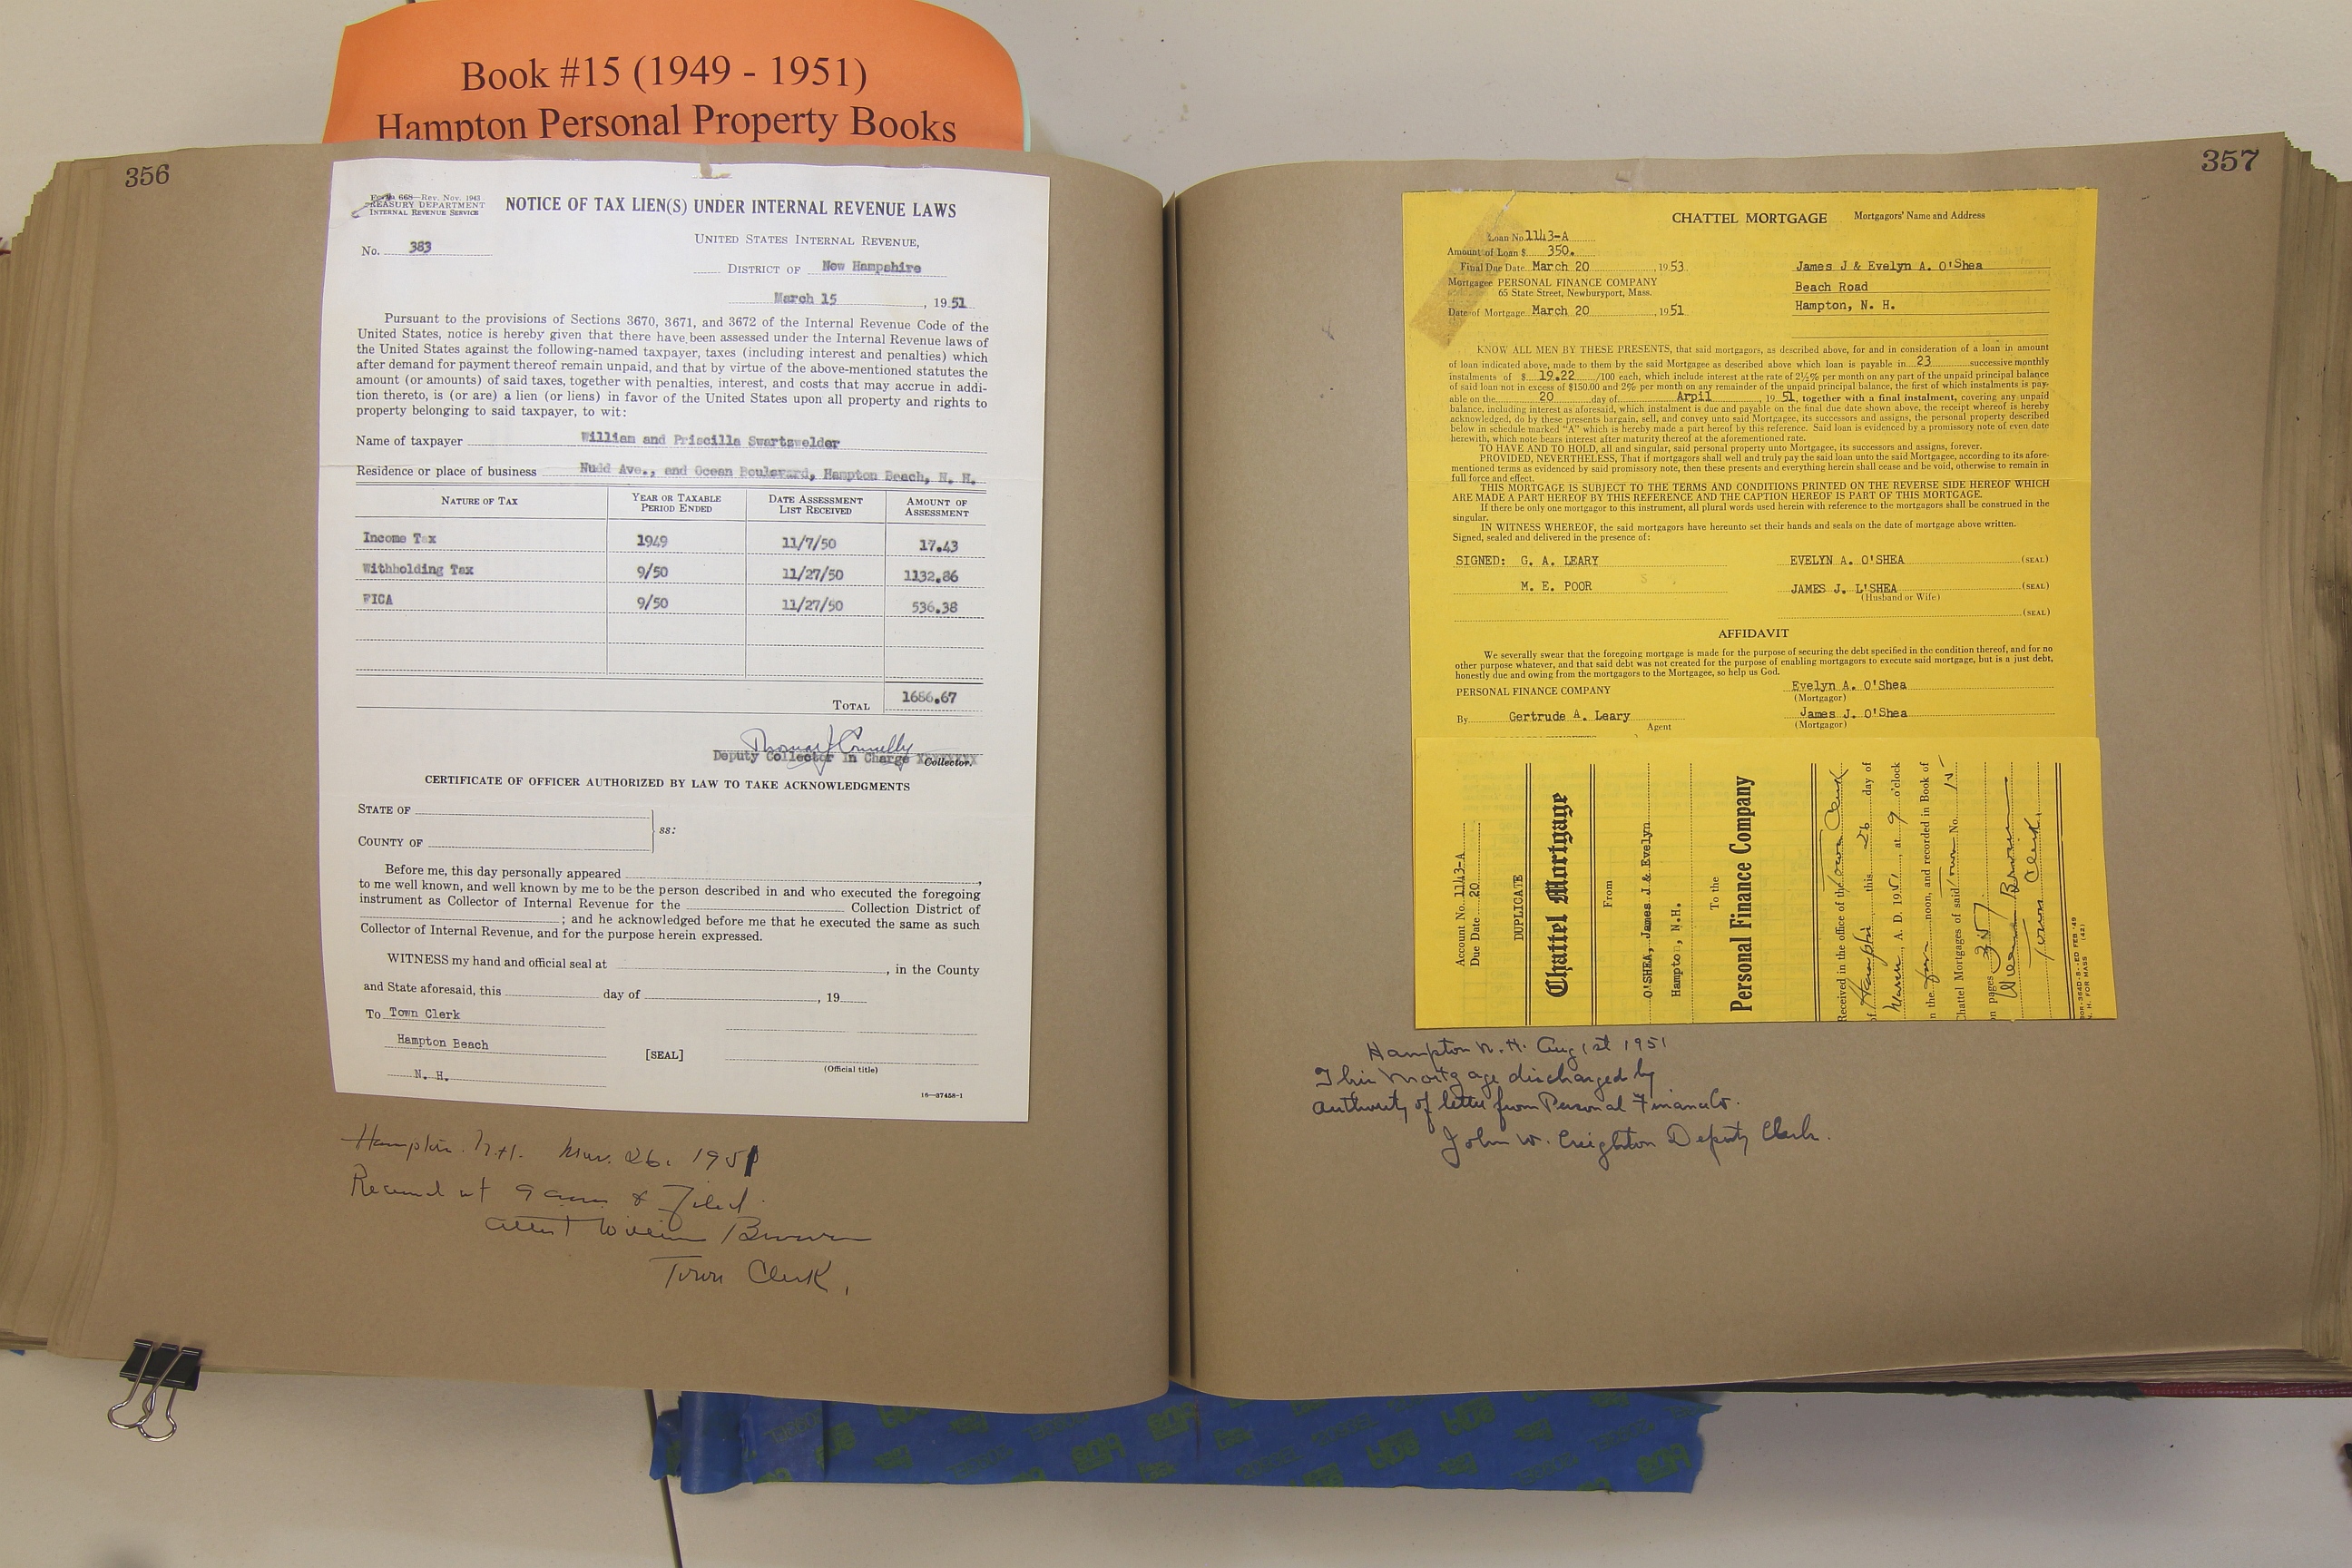 Book #15 (1949 - 1951)
Hampton Personal Property Books
356
Form 668—Rev. Nov. 1943
TREASURY DEPARTMENT
INTERNAL REVENUE SERVICE
NOTICE OF TAX LIEN(S) UNDER INTERNAL REVENUE LAWS
No. 383
UNITED STATES INTERNAL REVENUE,
DISTRICT OF New Hampshire
March 15, 1951
Pursuant to the provisions of Sections 3670, 3671, and 3672 of the Internal Revenue Code of the
United States, notice is hereby given that there have been assessed under the Internal Revenue laws of
the United States against the following-named taxpayer, taxes (including interest and penalties) which
after demand for payment thereof remain unpaid, and that by virtue of the above-mentioned statutes the
amount (or amounts) of said taxes, together with penalties, interest, and costs that may accrue in addi-
tion thereto, is (or are) a lien (or liens) in favor of the United States upon all property and rights to
property belonging to said taxpayer, to wit:
Name of taxpayer William and Priscilla Swartswelder
Residence or place of business Nudd Ave., and Ocean Boulevard, Hampton Beach, N. H.
NATURE OF TAX YEAR OR TAXABLE PERIOD ENDED DATE ASSESSMENT LIST RECEIVED AMOUNT OF ASSESSMENT
Income Tax 1949 11/7/50 17.43
Withholding Tax 9/50 11/27/50 1132.86
FICA 9/50 11/27/50 536.38
TOTAL 1686.67
Thomas J Connelly
Deputy Collector In Charge XXXXXXXX Collector.
CERTIFICATE OF OFFICER AUTHORIZED BY LAW TO TAKE ACKNOWLEDGMENTS
STATE OF
ss:
COUNTY OF
Before me, this day personally appeared ,
to me well known, and well known by me to be the person described in and who executed the foregoing
instrument as Collector of Internal Revenue for the Collection District of
; and he acknowledged before me that he executed the same as such
Collector of Internal Revenue, and for the purpose herein expressed.
WITNESS my hand and official seal at , in the County
and State aforesaid, this day of , 19
To Town Clerk
Hampton Beach
[SEAL]
N. H.
(Official title)
16—37458-1
Hampton. N.H. Mar. 26. 1951
Received at 9 am & Filed.
attest William Brown
Town Clerk.
357
CHATTEL MORTGAGE Mortgagors' Name and Address
Loan No. 1143-A
Amount of Loan $ 350.
Final Due Date March 20, 1953
James J & Evelyn A. O'Shea
Mortgagee PERSONAL FINANCE COMPANY
65 State Street, Newburyport, Mass.
Beach Road
Date of Mortgage March 20, 1951
Hampton, N. H.
KNOW ALL MEN BY THESE PRESENTS, that said mortgagors, as described above, for and in consideration of a loan in amount
of loan indicated above, made to them by the said Mortgagee as described above which loan is payable in 23 successive monthly
instalments of $ 19.22 /100 each, which include interest at the rate of 2½% per month on any part of the unpaid principal balance
of said loan not in excess of $150.00 and 2% per month on any remainder of the unpaid principal balance, the first of which instalments is pay-
able on the 20 day of Arpil, 1951, together with a final instalment, covering any unpaid
balance, including interest as aforesaid, which instalment is due and payable on the final due date shown above, the receipt whereof is hereby
acknowledged, do by these presents bargain, sell, and convey unto said Mortgagee, its successors and assigns, the personal property described
below in schedule marked "A" which is hereby made a part hereof by this reference. Said loan is evidenced by a promissory note of even date
herewith, which note bears interest after maturity thereof at the aforementioned rate.
TO HAVE AND TO HOLD, all and singular, said personal property unto Mortgagee, its successors and assigns, forever.
PROVIDED, NEVERTHELESS, That if mortgagors shall well and truly pay the said loan unto the said Mortgagee, according to its afore-
mentioned terms as evidenced by said promissory note, then these presents and everything herein shall cease and be void, otherwise to remain in
full force and effect.
THIS MORTGAGE IS SUBJECT TO THE TERMS AND CONDITIONS PRINTED ON THE REVERSE SIDE HEREOF WHICH
ARE MADE A PART HEREOF BY THIS REFERENCE AND THE CAPTION HEREOF IS PART OF THIS MORTGAGE.
If there be only one mortgagor to this instrument, all plural words used herein with reference to the mortgagors shall be construed in the
singular.
IN WITNESS WHEREOF, the said mortgagors have hereunto set their hands and seals on the date of mortgage above written.
Signed, sealed and delivered in the presence of:
SIGNED: G. A. LEARY EVELYN A. O'SHEA (SEAL)
M. E. POOR JAMES J. L'SHEA (SEAL)
(Husband or Wife)
(SEAL)
AFFIDAVIT
We severally swear that the foregoing mortgage is made for the purpose of securing the debt specified in the condition thereof, and for no
other purpose whatever, and that said debt was not created for the purpose of enabling mortgagors to execute said mortgage, but is a just debt,
honestly due and owing from the mortgagors to the Mortgagee, so help us God.
PERSONAL FINANCE COMPANY Evelyn A. O'Shea
(Mortgagor)
By Gertrude A. Leary James J. O'Shea
Agent (Mortgagor)
Account No. 1143-A
Due Date 20
DUPLICATE
Chattel Mortgage
From
O'SHEA, James J & Evelyn
Hampton, N.H.
To the
Personal Finance Company
Received in the office of the Town Clerk
of Hampton this 26 day of
March, A. D. 1951, at 9 o'clock
in the fore noon, and recorded in Book of
Chattel Mortgages of said Town No. 15
on pages 357
William Brown
Town Clerk.
N. H. FOR MASS (42)
Hampton N. H. Aug 1st 1951
This Mortgage discharged by
authority of letter from Personal Finance Co.
John W. Creighton Deputy Clerk.